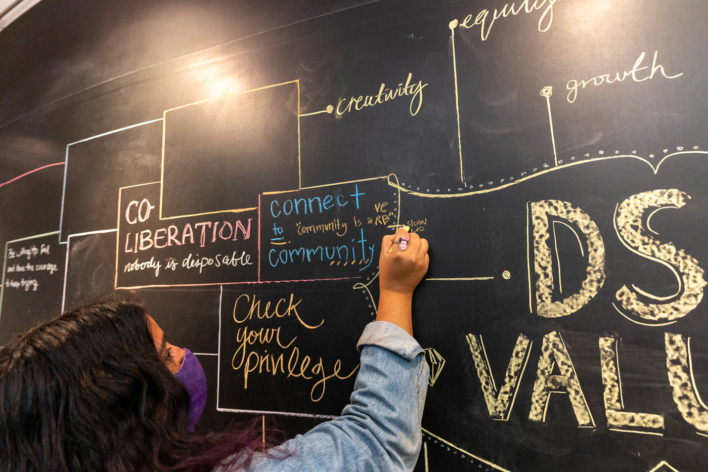 equity
growth
creativity
CO-
LIBERATION
nobody is disposable
connect
to community is a VERB"
community
Check
your
privilege
and have the courage
to keep trying
DS
VALU